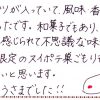 ツが入っていて、風味 香
ったです。和菓子でもあり、
感じられて不思議な味
限定のスイポテ巣ごもり
いと思います。
うさまでした!!